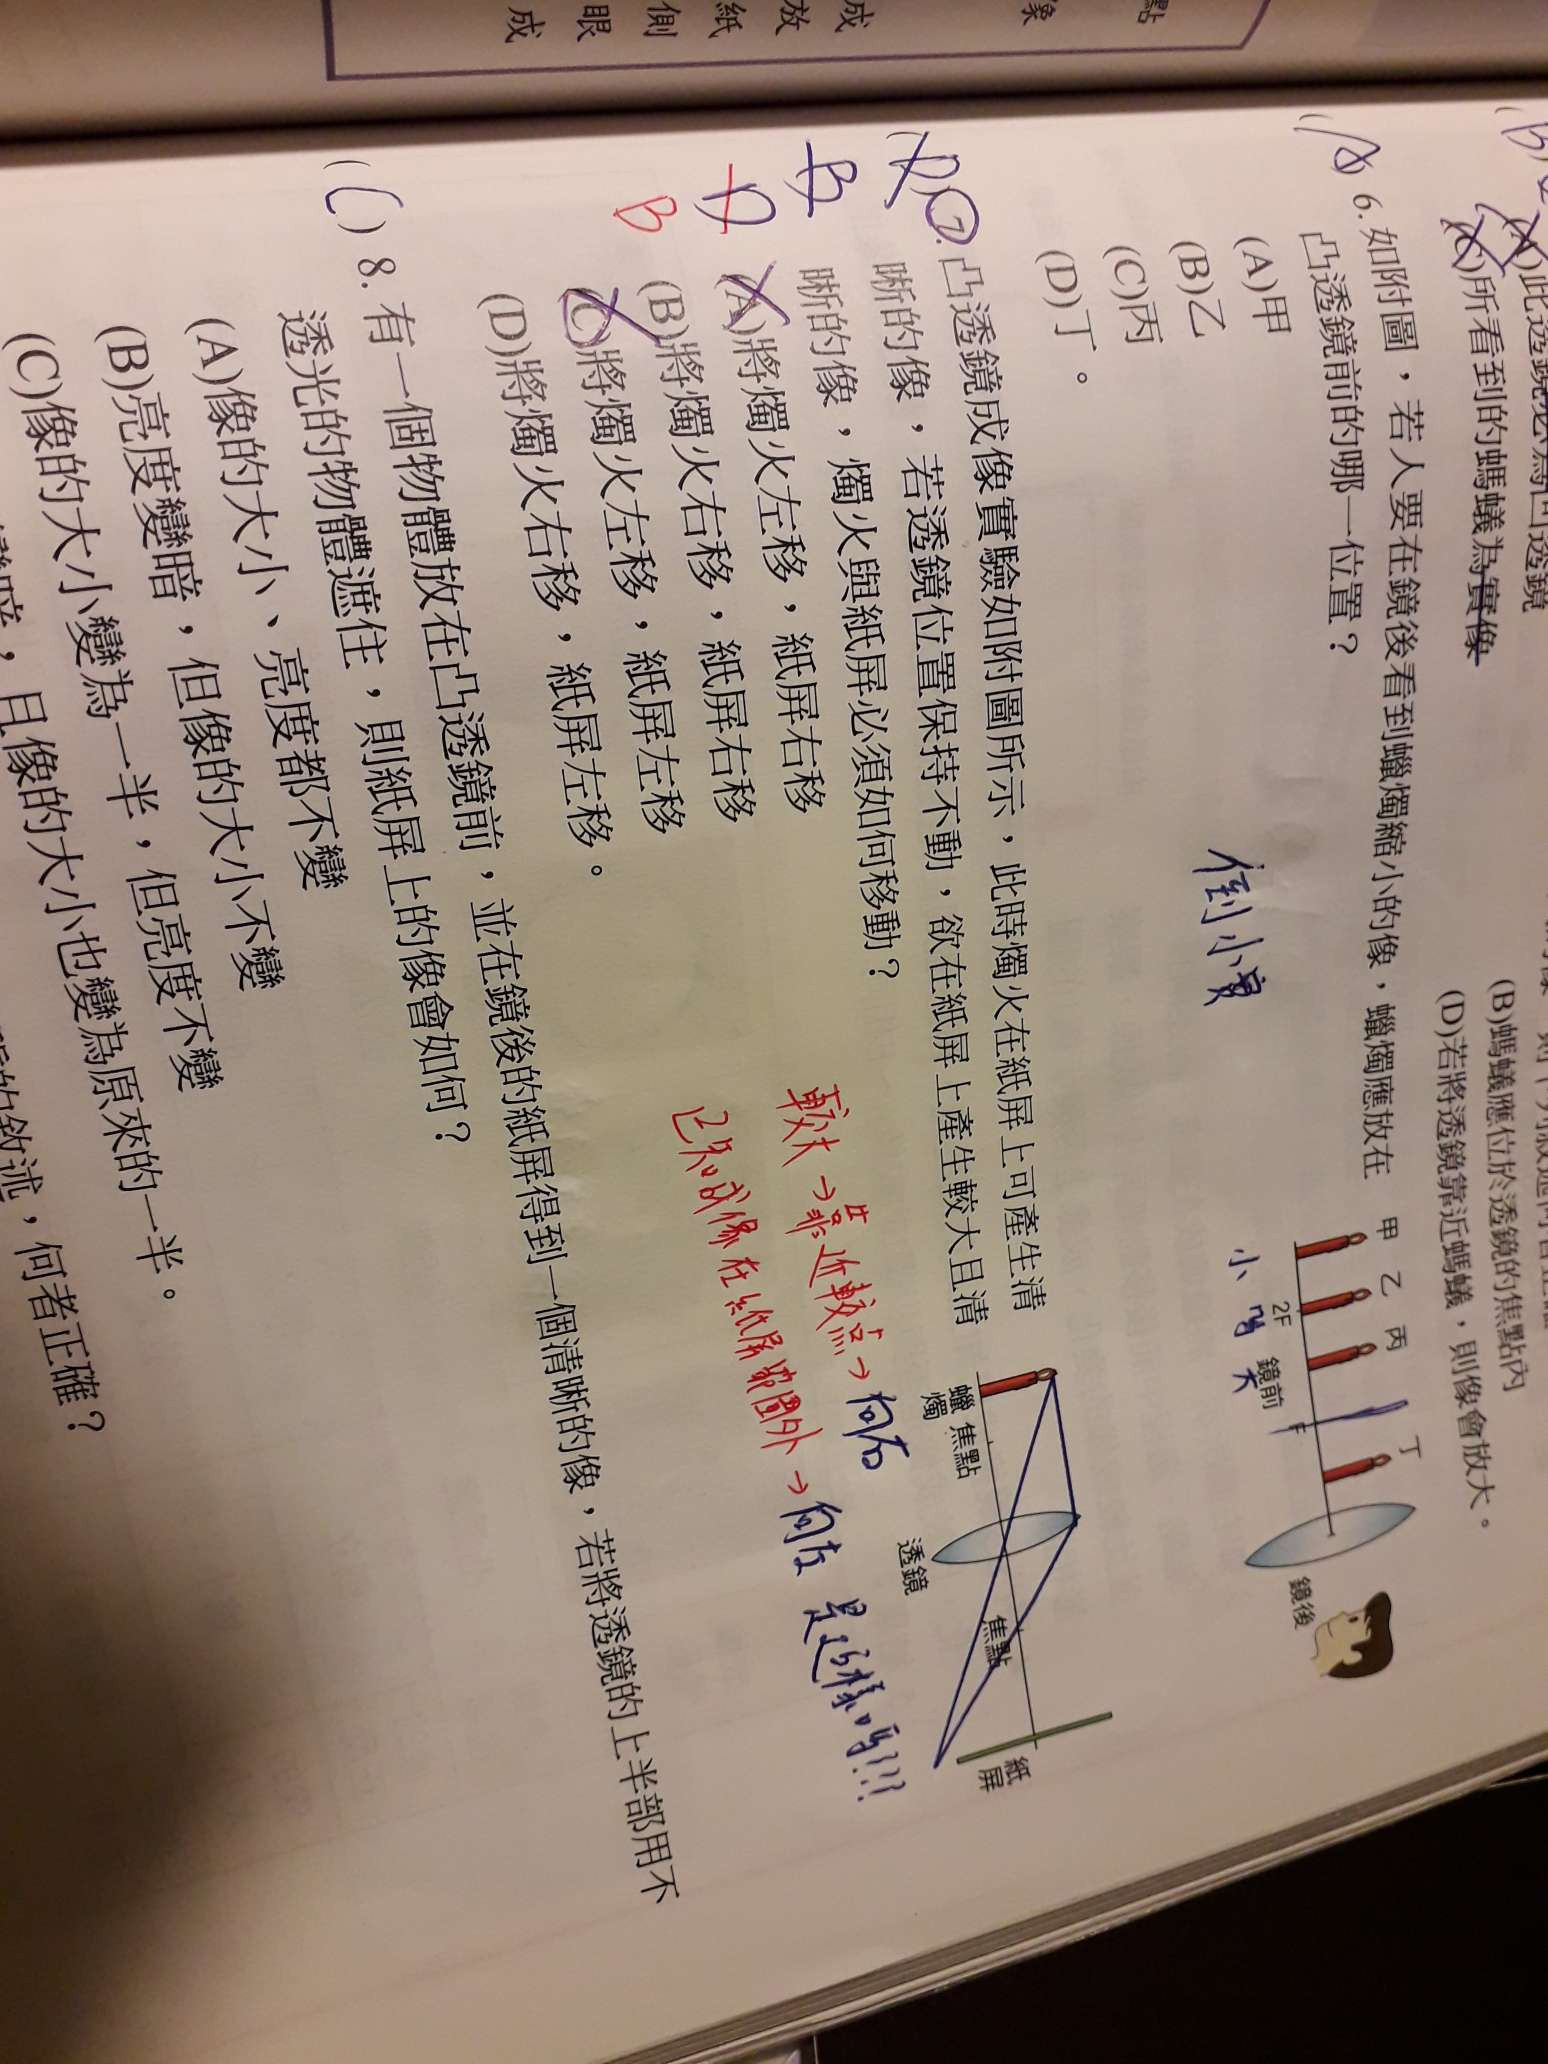 點
像
成
放
紙
側
眼
成
(A)此透鏡必為凹透鏡
(B)螞蟻應位於透鏡的焦點內
(C)所看到的螞蟻為實像
(D)若將透鏡靠近螞蟻，則像會放大。
6.如附圖，若人要在鏡後看到蠟燭縮小的像，蠟燭應放在
凸透鏡前的哪一位置？
(A)甲
(B)乙
(C)丙
(D)丁。
倒小實
甲 乙 丙 丁
2F F
鏡前
鏡後
小 大
(D)7.凸透鏡成像實驗如附圖所示，此時燭火在紙屏上可產生清
晰的像，若透鏡位置保持不動，欲在紙屏上產生較大且清
晰的像，燭火與紙屏必須如何移動？
B
D
B
(A)將燭火左移，紙屏右移
(B)將燭火右移，紙屏右移
(C)將燭火左移，紙屏左移
(D)將燭火右移，紙屏左移。
較大→靠近較点→向右
已知成像在紙屏範圍外→向左 是這樣嗎???
蠟燭
焦點
透鏡
焦點
紙屏
(C)8.有一個物體放在凸透鏡前，並在鏡後的紙屏得到一個清晰的像，若將透鏡的上半部用不
透光的物體遮住，則紙屏上的像會如何？
(A)像的大小、亮度都不變
(B)亮度變暗，但像的大小不變
(C)像的大小變為一半，但亮度不變
變暗，且像的大小也變為原來的一半。
的敘述，何者正確？